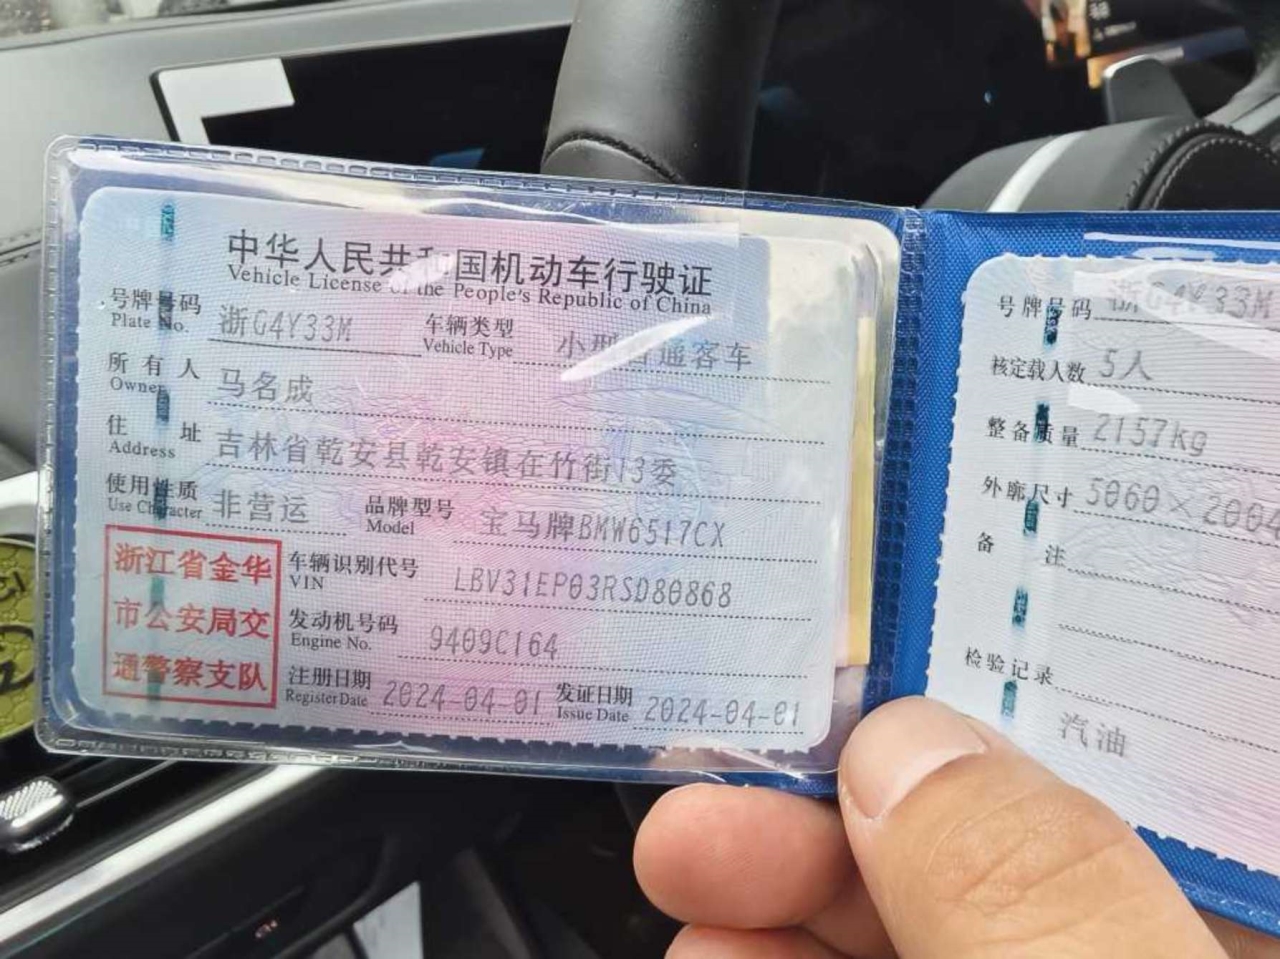 中华人民共和国机动车行驶证
Vehicle License of the People's Republic of China
号牌号码 浙G4Y33M 车辆类型 小型普通客车
Plate No. Vehicle Type
所有人 马名成
Owner
住址 吉林省乾安县乾安镇在竹街13委
Address
使用性质 非营运 品牌型号 宝马牌BMW6517CX
Use Character Model
浙江省金华
市公安局交
通警察支队
车辆识别代号 LBV31EP03RSD80868
VIN
发动机号码 9409C164
Engine No.
注册日期 2024-04-01 发证日期 2024-04-01
Register Date Issue Date
号牌号码 浙G4Y33M
核定载人数 5人
整备质量 2157kg
外廓尺寸 5060×2004
备注
检验记录
汽油